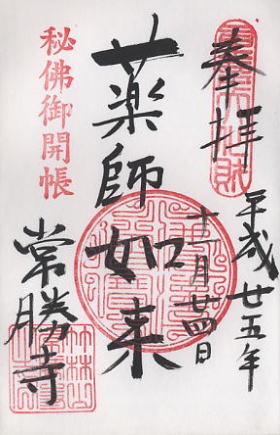 奉拝
平成廿五年
十二月廿四日
薬師如来
常勝寺
秘佛御開帳
竹林山